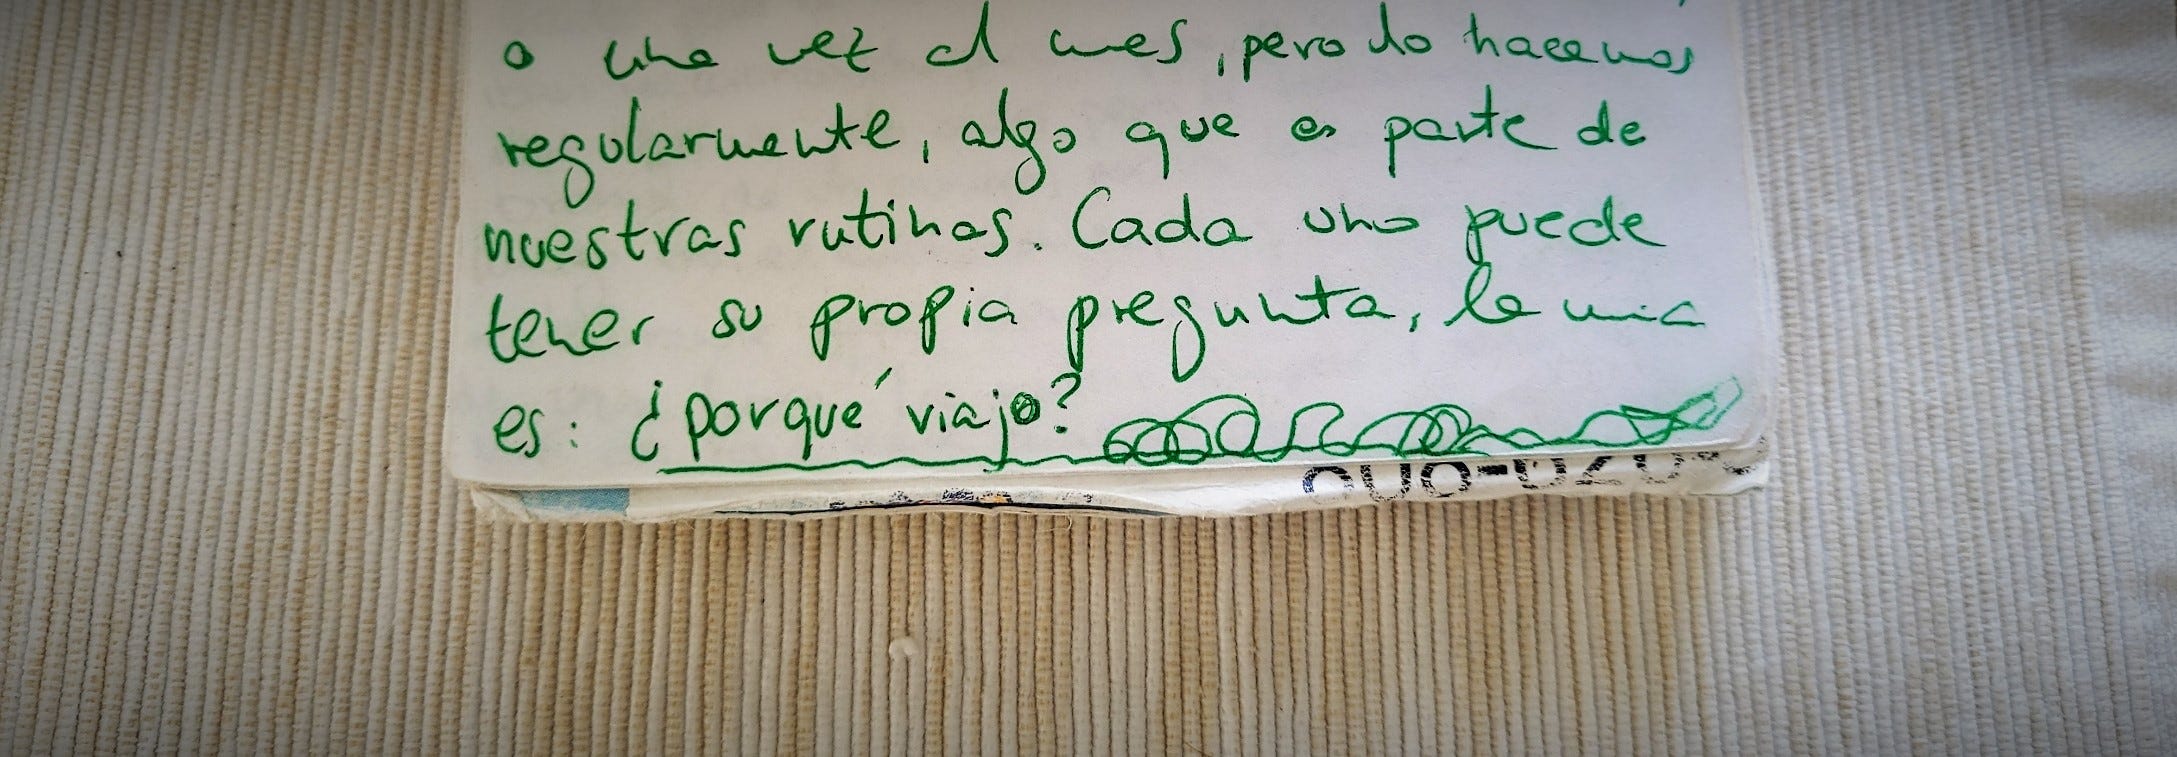 o una vez al mes, pero lo hacemos
regularmente, algo que es parte de
nuestras rutinas. Cada uno puede
tener su propia pregunta, la mia
es: ¿porqué viajo?